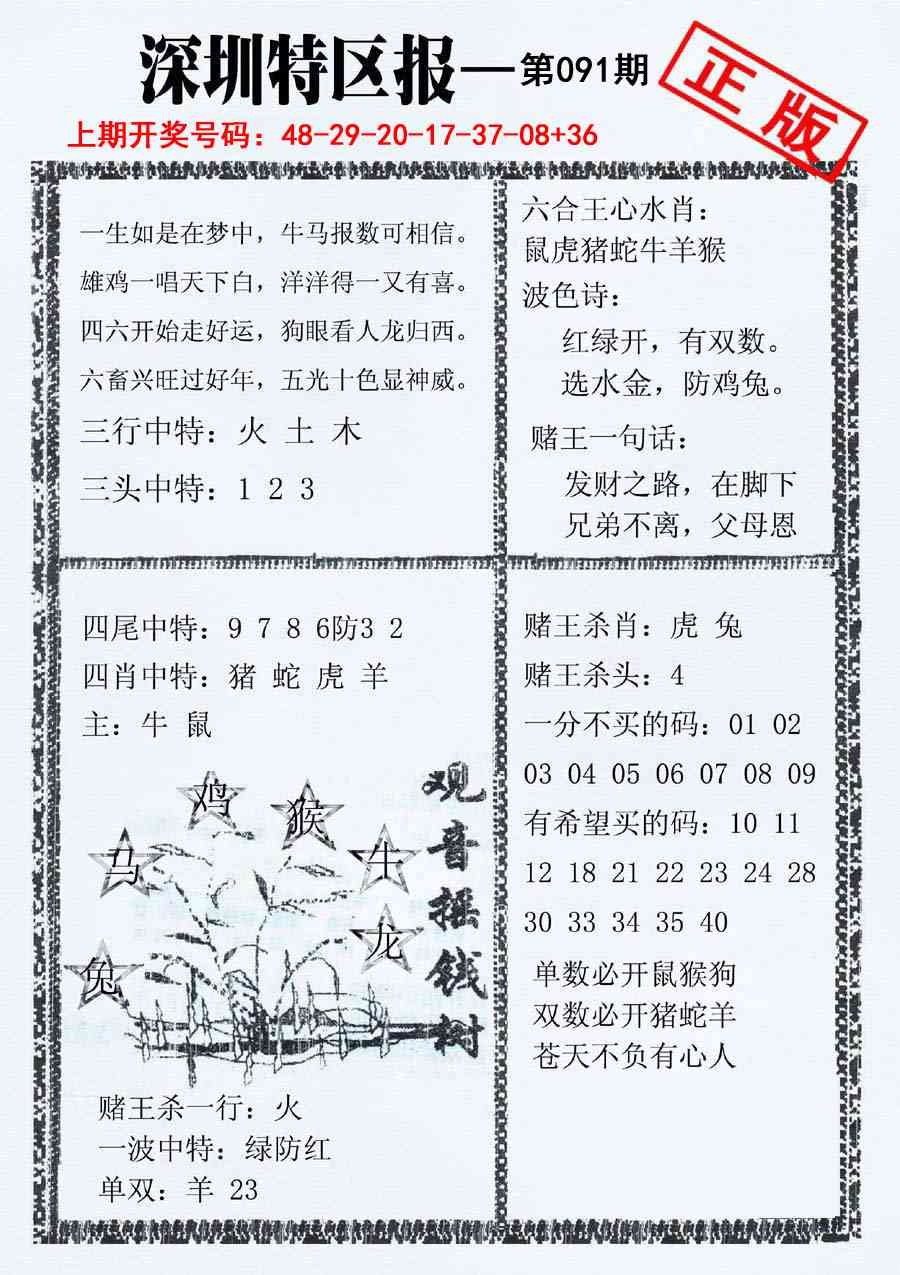 深圳特区报—第091期
正版
上期开奖号码：48-29-20-17-37-08+36
一生如是在梦中，牛马报数可相信。
雄鸡一唱天下白，洋洋得一又有喜。
四六开始走好运，狗眼看人龙归西。
六畜兴旺过好年，五光十色显神威。
三行中特：火 土 木
三头中特：1 2 3
六合王心水肖：
鼠虎猪蛇牛羊猴
波色诗：
红绿开，有双数。
选水金，防鸡兔。
赌王一句话：
发财之路，在脚下
兄弟不离，父母恩
四尾中特：9 7 8 6防3 2
四肖中特：猪 蛇 虎 羊
主：牛 鼠
鸡
猴
马
牛
龙
兔
观音摇钱树
赌王杀一行：火
一波中特：绿防红
单双：羊 23
赌王杀肖：虎 兔
赌王杀头：4
一分不买的码：01 02
03 04 05 06 07 08 09
有希望买的码：10 11
12 18 21 22 23 24 28
30 33 34 35 40
单数必开鼠猴狗
双数必开猪蛇羊
苍天不负有心人